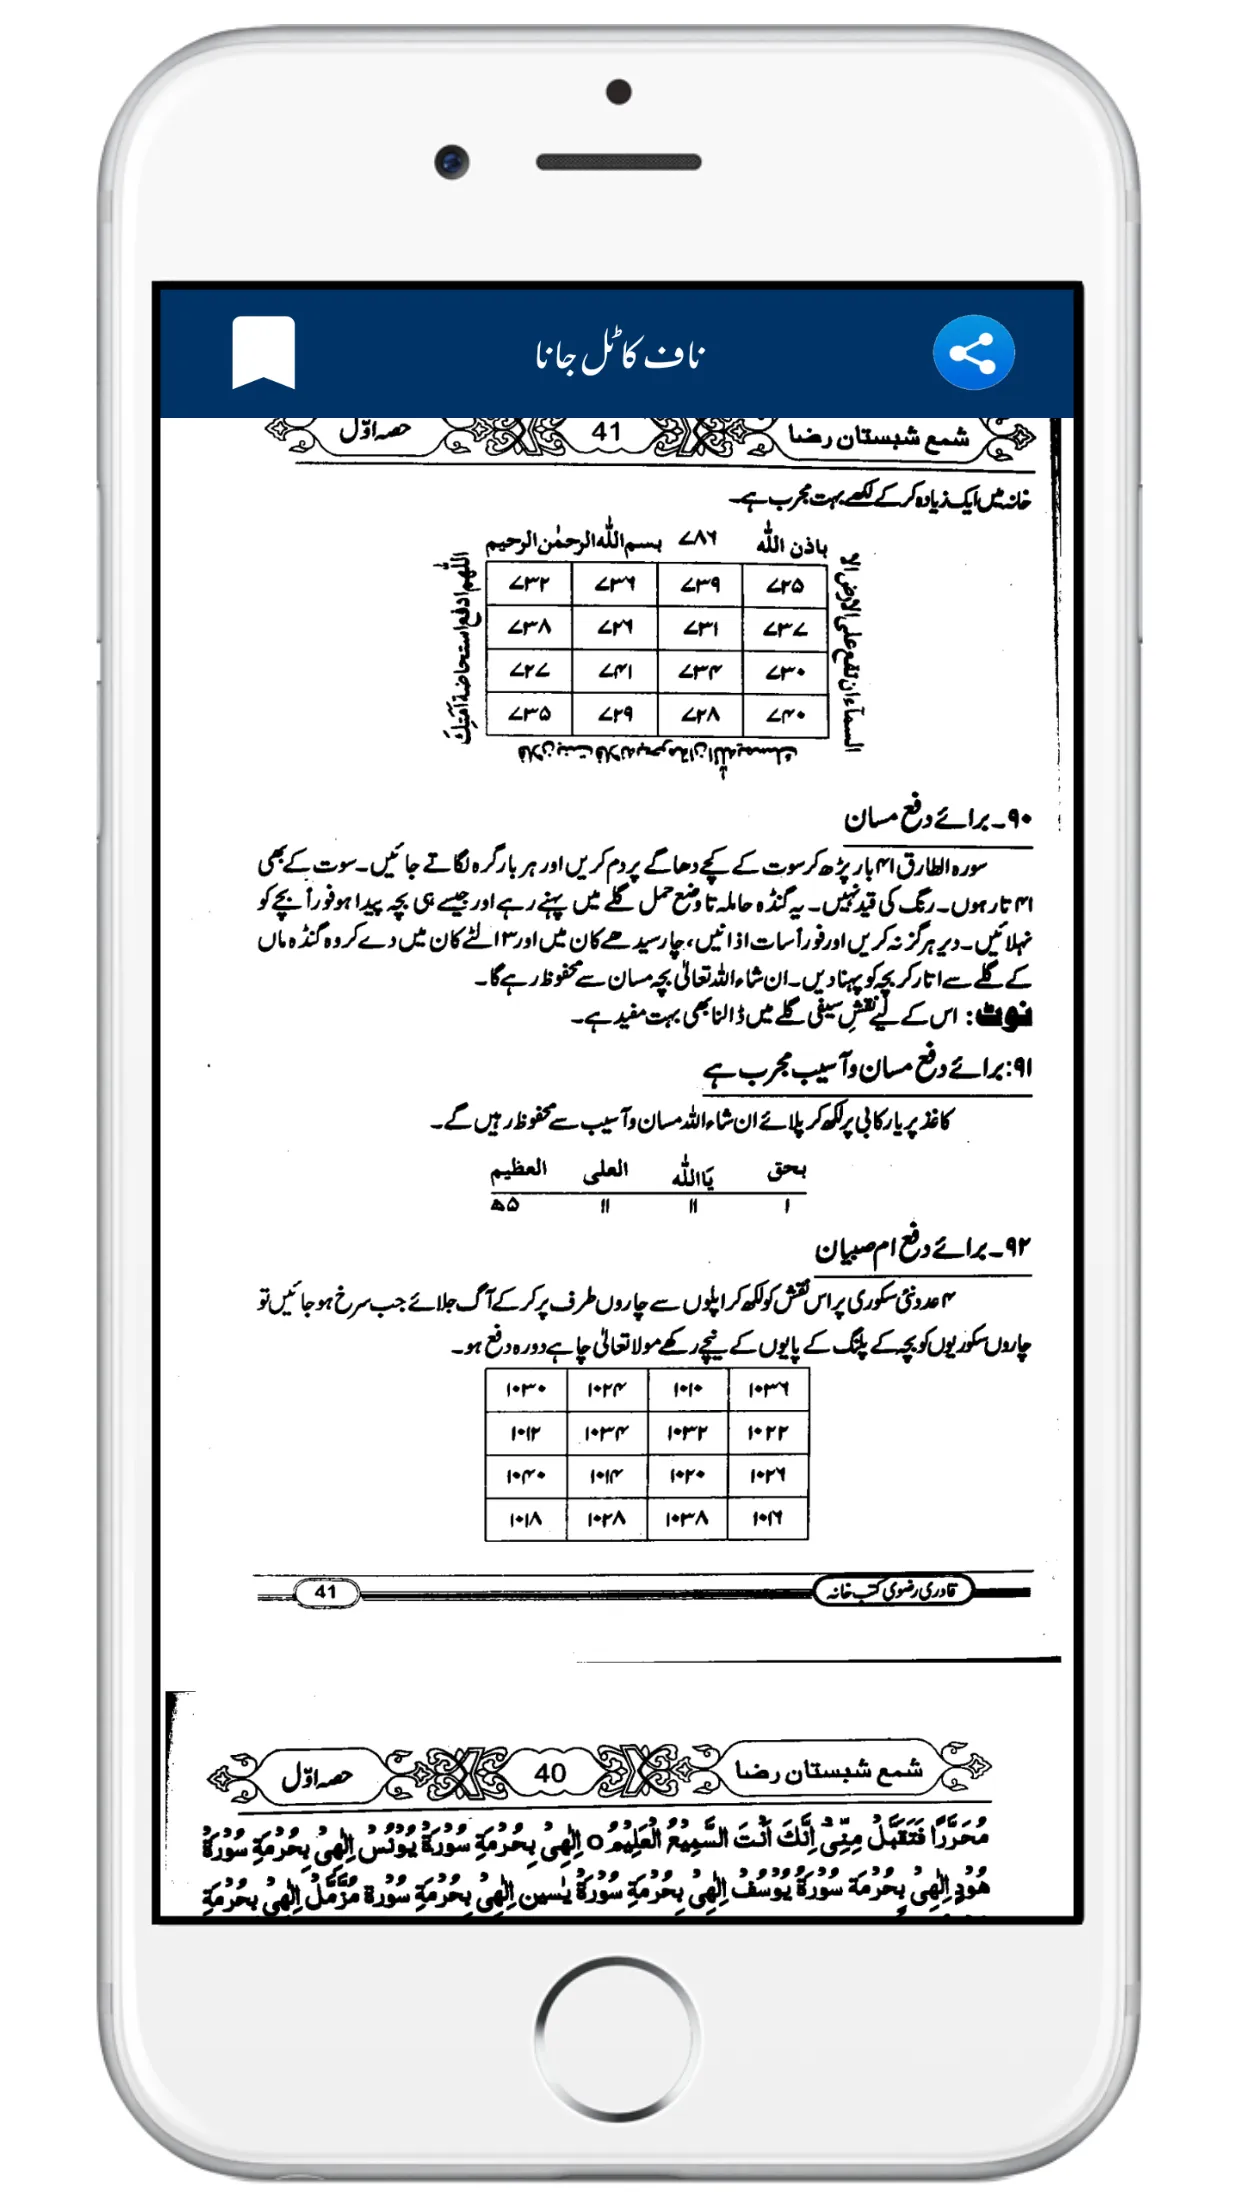 ناف کا ٹل جانا
شمع شبستان رضا 41 حصہ اوّل
خانہ میں ایک زیادہ کر کے لکھے بہت مجرب ہے۔
باذن اللہ ۷۸۶ بسم اللہ الرحمٰن الرحیم
السمآء ان تقع علی الارض الا
۷۲۵ ۷۳۹ ۷۳۶ ۷۳۲
۷۳۷ ۷۳۱ ۷۲۶ ۷۳۸
۷۳۰ ۷۳۴ ۷۴۱ ۷۲۷
۷۴۰ ۷۲۸ ۷۲۹ ۷۳۵
اللھم ادفع استحاضۃ اَمَتِکَ
۹۰۔ برائے دفع مسان
سورہ الطارق ۴۱ بار پڑھ کر سوت کے کچے دھاگے پر دم کریں اور ہر بار گرہ لگاتے جائیں۔ سوت کے بھی
۴۱ تار ہوں۔ رنگ کی قید نہیں۔ یہ گنڈہ حاملہ تا وضع حمل گلے میں پہنے رہے اور جیسے ہی بچہ پیدا ہو فوراً بچے کو
نہلائیں۔ دیر ہرگز نہ کریں اور فوراً سات اذانیں، چار سیدھے کان میں اور ۳ الٹے کان میں دے کر وہ گنڈہ ماں
کے گلے سے اتار کر بچہ کو پہنا دیں۔ ان شاء اللہ تعالیٰ بچہ مسان سے محفوظ رہے گا۔
نوٹ: اس کے لیے نقشِ سیفی گلے میں ڈالنا بھی بہت مفید ہے۔
۹۱: برائے دفع مسان و آسیب مجرب ہے
کاغذ پر یا رکابی پر لکھ کر پلائے ان شاء اللہ مسان و آسیب سے محفوظ رہیں گے۔
بحق یَااللہ العلی العظیم
۱ ۱۱ ۱۱ ۵ھ
۹۲۔ برائے دفع ام صبیان
۴ عدد نئی سکوری پر اس نقش کو لکھ کر اپلوں سے چاروں طرف پر کر کے آگ جلائے جب سرخ ہو جائیں تو
چاروں سکوریوں کو بچہ کے پلنگ کے پایوں کے نیچے رکھے مولا تعالیٰ چاہے دورہ دفع ہو۔
۱۰۳۶ ۱۰۱۰ ۱۰۲۴ ۱۰۳۰
۱۰۲۲ ۱۰۳۲ ۱۰۳۴ ۱۰۱۲
۱۰۲۶ ۱۰۲۰ ۱۰۱۴ ۱۰۴۰
۱۰۱۶ ۱۰۳۸ ۱۰۲۸ ۱۰۱۸
قادری رضوی کتب خانہ 41
شمع شبستان رضا 40 حصہ اوّل
مُحَرَّرًا فَتَقَبَّلْ مِنِّیْ اِنَّکَ اَنْتَ السَّمِیْعُ الْعَلِیْمُ o اِلٰھِیْ بِحُرْمَۃِ سُوْرَۃُ یُوْنُسْ اِلٰھِیْ بِحُرْمَۃِ سُوْرَۃُ
ھُوْدِ اِلٰھِیْ بِحُرْمَۃ سُوْرَۃُ یُوْسُفْ اِلٰھِیْ بِحُرْمَۃِ سُوْرَۃُ یٰسین اِلٰھِیْ بِحُرْمَۃِ سُوْرَۃ مُزَّمِّلْ اِلٰھِیْ بِحُرْمَۃِ